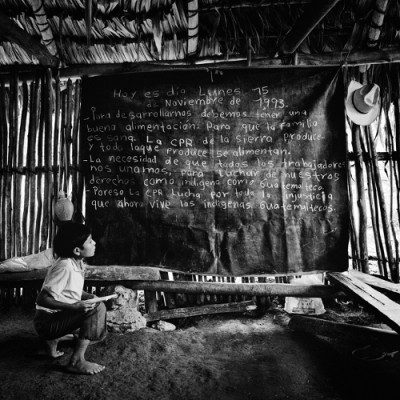 Hoy es día Lunes 15
de Noviembre de 1993.
-Para desarrollarnos debemos tener una
buena alimentacion. Para que la familia
es sana. La CPR de la sierra produce
y toda laque produce se alimentan.
-La necesidad de que todos los trabajadores
nos unamos, para Luchar de nuestros
derechos como indigena como Guatemalteco
-Pareso La CPR Lucha por todo la injusticia
que ahora vive los indigenas Guatemaltecos.